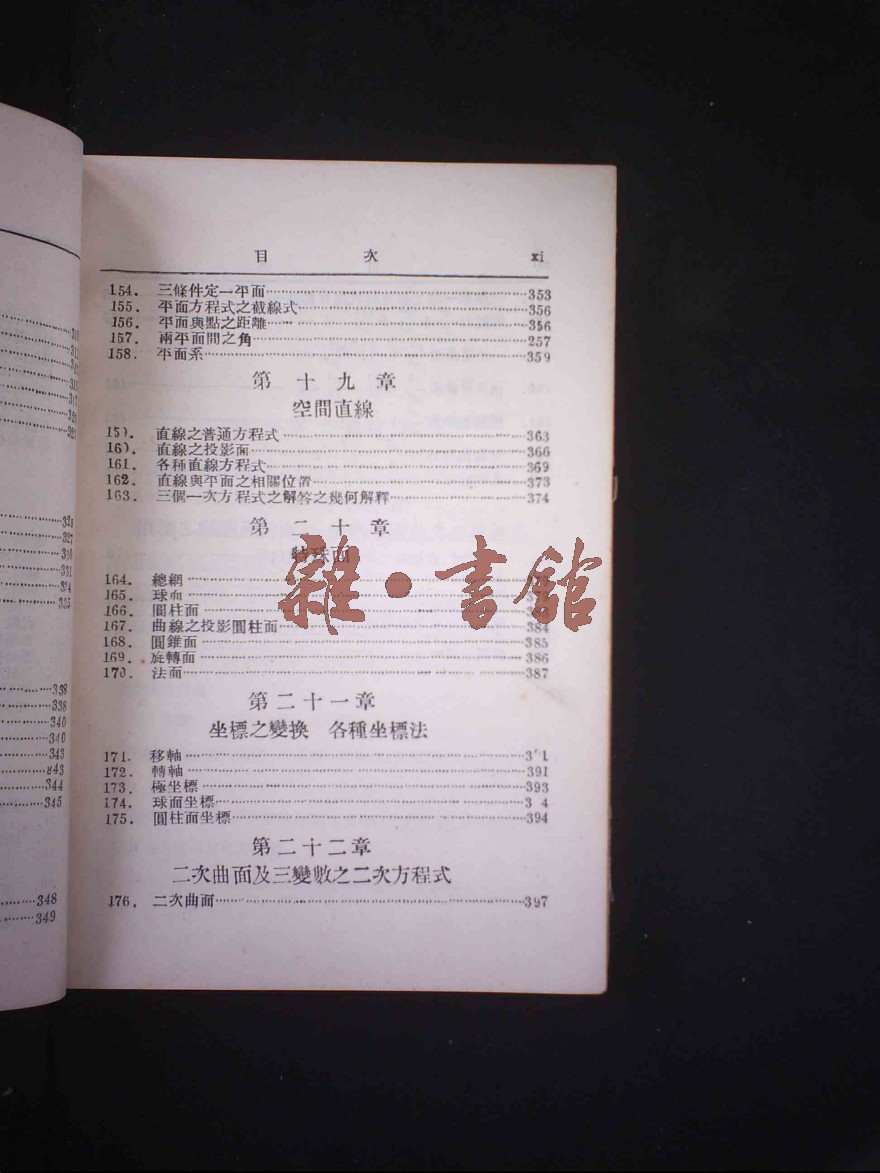 目 次 xi
154. 三條件定一平面 353
155. 平面方程式之截線式 356
156. 平面與點之距離 356
157. 兩平面間之角 257
158. 平面系 359
第十九章
空間直線
159. 直線之普通方程式 363
160. 直線之投影面 366
161. 各種直線方程式 369
162. 直線與平面之相關位置 373
163. 三個一次方程式之解答之幾何解釋 374
第二十章
特殊面
164. 總綱
165. 球面
166. 圓柱面
167. 曲線之投影圓柱面 384
168. 圓錐面 385
169. 旋轉面 386
170. 法面 387
第二十一章
坐標之變換 各種坐標法
171. 移軸
172. 轉軸 391
173. 極坐標 393
174. 球面坐標
175. 圓柱面坐標 394
第二十二章
二次曲面及三變數之二次方程式
176. 二次曲面 397
雜·書館
338
338
340
340
343
343
344
345
348
349